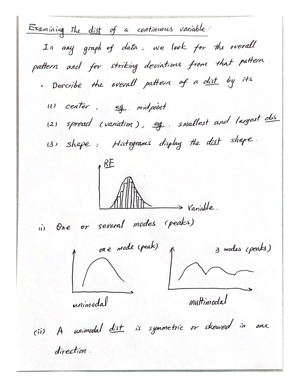 Examining the dist of a continuous variable:
In any graph of data, we look for the overall
pattern and for striking deviations from that pattern.
• Describe the overall pattern of a dist by its
(1) center, eg. midpoint
(2) spread (variation), eg. smallest and largest obs.
(3) shape: Histograms display the dist shape.
RF
Variable
(i) One or several modes (peaks)
one mode (peak)
3 modes (peaks)
unimodal
multimodal
(ii) A unimodal dist is symmetric or skewed in one
direction.